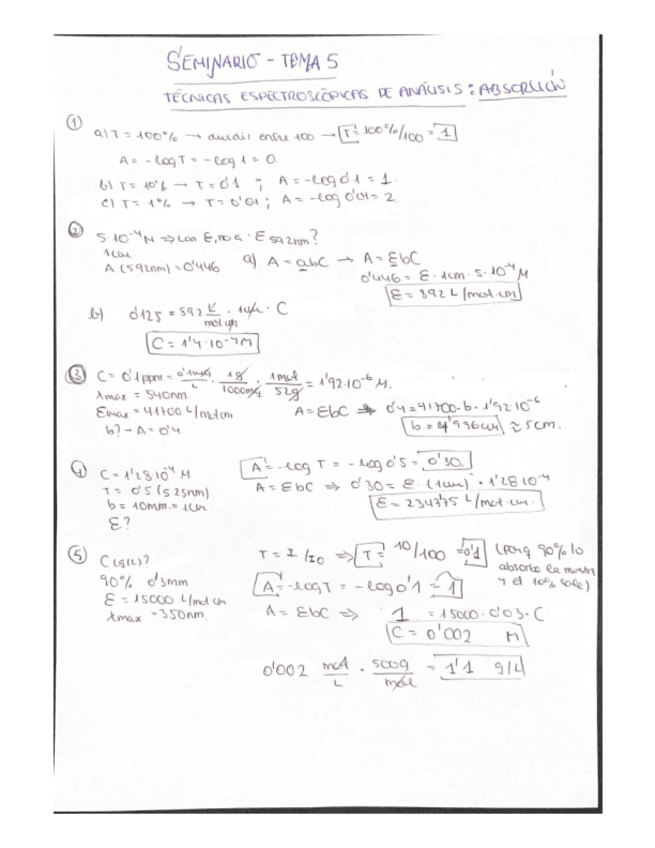 SEMINARIO - TEMA 5
TÉCNICAS ESPECTROSCÓPICAS DE ANÁLISIS: ABSORCIÓN
①
a) T = 100% → dividir entre 100 → T = 100%/100 = 1
A = -log T = -log 1 = 0.
b) T = 10% → T = 0'1 ; A = -log 0'1 = 1.
c) T = 1% → T = 0'01 ; A = -log 0'01 = 2.
②
5·10⁻⁴ M ⇒ E 592nm?
1cm
A (592nm) = 0'446
a) A = abC → A = EbC
0'446 = E · 1cm · 5·10⁻⁴ M
E = 892 L/mol·cm
b) 0'125 = 892 L/mol cm · 1cm · C
C = 1'4·10⁻⁴ M
③ C = 0'1 ppm = 0'1mg/L · 1g/1000mg · 1mol/52g = 1'92·10⁻⁶ M.
λmax = 540nm
Emax = 41700 L/mol cm
b? → A = 0'4
A = EbC ⇒ 0'4 = 41700 · b · 1'92·10⁻⁶
b = 4'996cm ≈ 5cm.
④ C = 1'28·10⁻⁴ M
T = 0'5 (525nm)
b = 10mm = 1cm
E?
A = -log T = -log 0'5 = 0'30
A = EbC ⇒ 0'30 = E · (1cm) · 1'28·10⁻⁴
E = 2343'75 L/mol·cm.
⑤ C (g/L)?
90% 0'3mm
E = 15000 L/mol cm
λmax = 350nm
T = I/I0 ⇒ T = 10/100 = 0'1 (porq 90% lo
absorbe la muestra
y el 10% sale)
A = -log T = -log 0'1 = 1
A = EbC ⇒ 1 = 15000 · 0'03 · C
C = 0'002 M
0'002 mol/L · 500g/mol = 1'1 g/L